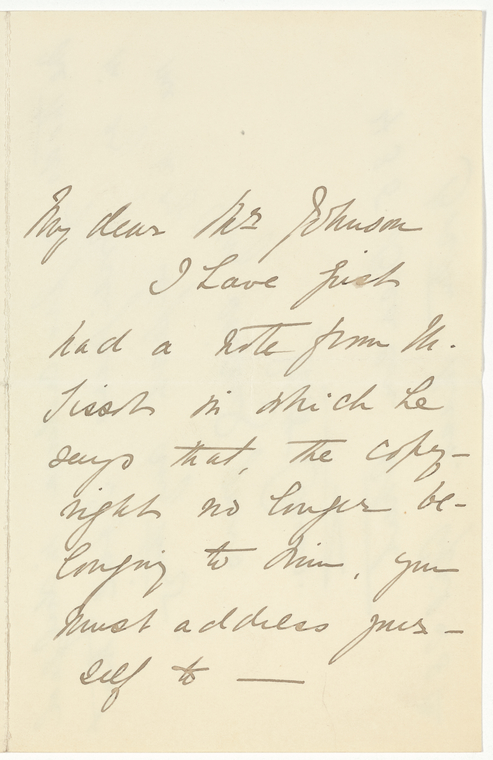 My dear Mr Johnson
I have just
had a note from M.
Tissot in which he
says that, the copy-
right no longer be-
longing to him, you
must address your-
self to —